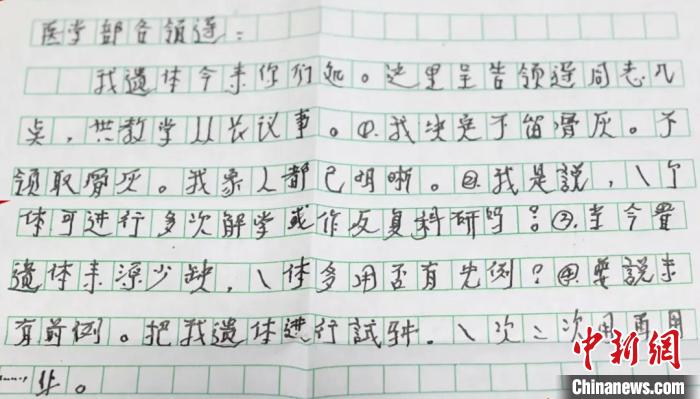 医学部各领导：
我遗体今来你们处。这里呈告领导同志几
点，供教学从长议事。①.我决定不留骨灰。不
领取骨灰。我家人都已明晰。②.我是說，一个
体可进行多次解学或作反复科研吗？③.至今置
遗体来源少缺，一体多用否有先例？④.要說未
有前例。把我遗体进行試驗．一次二次用再用
……止。
中新网
Chinanews.com